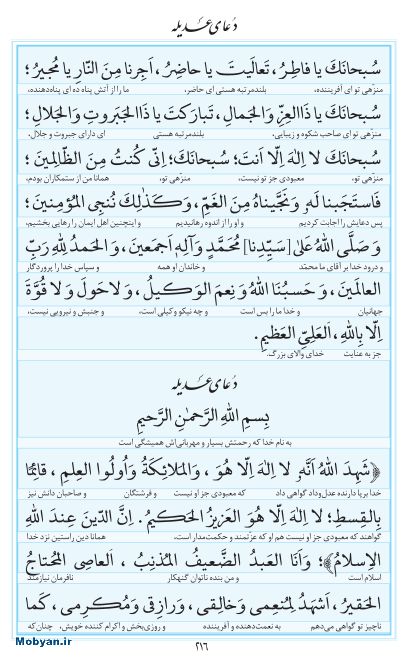 دعای عدیله
سُبحانَكَ يا فاطِرُ، تَعالَيتَ يا حاضِرُ، اَجِرنا مِنَ النّارِ يا مُجيرُ؛
منزّهی تو ای آفریننده، بلندمرتبه هستی ای حاضر، ما را از آتش پناه ده ای پناه‌دهنده،
سُبحانَكَ يا ذَاالعِزِّ وَالجَمالِ، تَبارَكتَ يا ذَاالجَبَروتِ وَالجَلالِ؛
منزّهی تو ای صاحب شکوه و زیبایی، بلندمرتبه هستی ای دارای جبروت و جلال،
سُبحانَكَ لا اِلٰهَ اِلّا اَنتَ؛ سُبحانَكَ؛ اِنّى كُنتُ مِنَ الظّالِمينَ؛
منزّهی تو، معبودی جز تو نیست، منزّهی تو، همانا من از ستمکاران بودم،
فَاستَجَبنا لَهُ وَنَجَّيناهُ مِنَ الغَمِّ، وَكَذٰلِكَ نُنجِى المُؤمِنينَ؛
پس دعایش را اجابت کردیم و او را از اندوه رهانیدیم و اینچنین اهل ایمان را رهایی بخشیم،
وَ صَلَّى اللهُ عَلىٰ [سَيِّدِنا] مُحَمَّدٍ وَآلِهٖ اَجمَعينَ، وَالحَمدُ لِلّٰهِ رَبِّ
و درود خدا بر آقای ما محمّد و خاندان او همه و سپاس خدا را پروردگار
العالَمينَ، وَحَسبُنَا اللهُ وَنِعمَ الوَكيلُ، وَلاحَولَ وَلا قُوَّةَ
جهانیان و خدا ما را بس است و چه نیکو وکیلی است، و جنبش و نیرویی نیست،
اِلّا بِاللهِ، اَلعَلِىِّ العَظيمِ.
جز به عنایت خدای والای بزرگ.
دعای عدیله
بِسمِ اللهِ الرَّحمٰنِ الرَّحيمِ
به نام خدا که رحمتش بسیار و مهربانی‌اش همیشگی است
﴿شَهِدَ اللهُ اَنَّهُ لا اِلٰهَ اِلّا هُوَ، وَالمَلائِكَةُ وَاُولُوا العِلمِ، قائِمًا
خدا برپا دارنده عدل‌وداد گواهی داد که معبودی جز او نیست و فرشتگان و صاحبان دانش نیز
بِالقِسطِ؛ لا اِلٰهَ اِلّا هُوَ العَزيزُ الحَكيمُ. اِنَّ الدّينَ عِندَ اللهِ
گواهند که معبودی جز او نیست هم او که عزتمند و حکمت‌مدار است، همانا دین راستین نزد خدا
الاِسلامُ﴾؛ وَاَنَا العَبدُ الضَّعيفُ المُذنِبُ، اَلعاصِى المُحتاجُ
اسلام است و من بنده ناتوان گنهکار نافرمان نیازمند
الحَقيرُ، اَشهَدُ لِمُنعِمى وَخالِقى، وَرازِقى وَمُكرِمى، كَما
ناچیز تو گواهی می‌دهم به نعمت‌دهنده و آفریننده و روزی‌بخش و اکرام کننده خویش، چنان‌که
٢١٦
Mobyan.ir